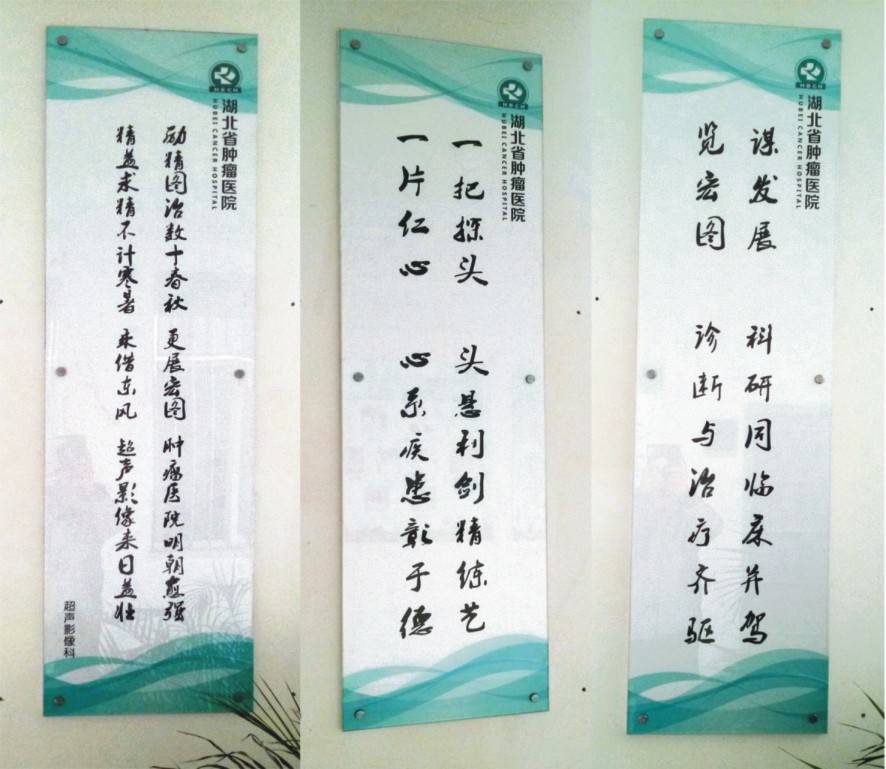 HBCH
湖北省肿瘤医院
HUBEI CANCER HOSPITAL
励精图治数十春秋 更展宏图 肿瘤医院明朝愈强
精益求精不计寒暑 乘借东风 超声影像来日益壮
超声影像科
HBCH
湖北省肿瘤医院
HUBEI CANCER HOSPITAL
一把探头 头悬利剑精练艺
一片仁心 心系疾患彰于德
HBCH
湖北省肿瘤医院
HUBEI CANCER HOSPITAL
谋发展 科研同临床并驾
览宏图 诊断与治疗齐驱